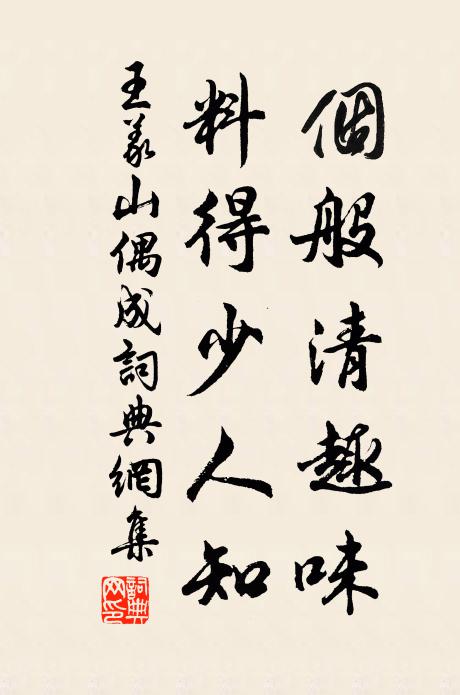 個般清趣味
料得少人知
王義山偶成詞典網集
詞典網印